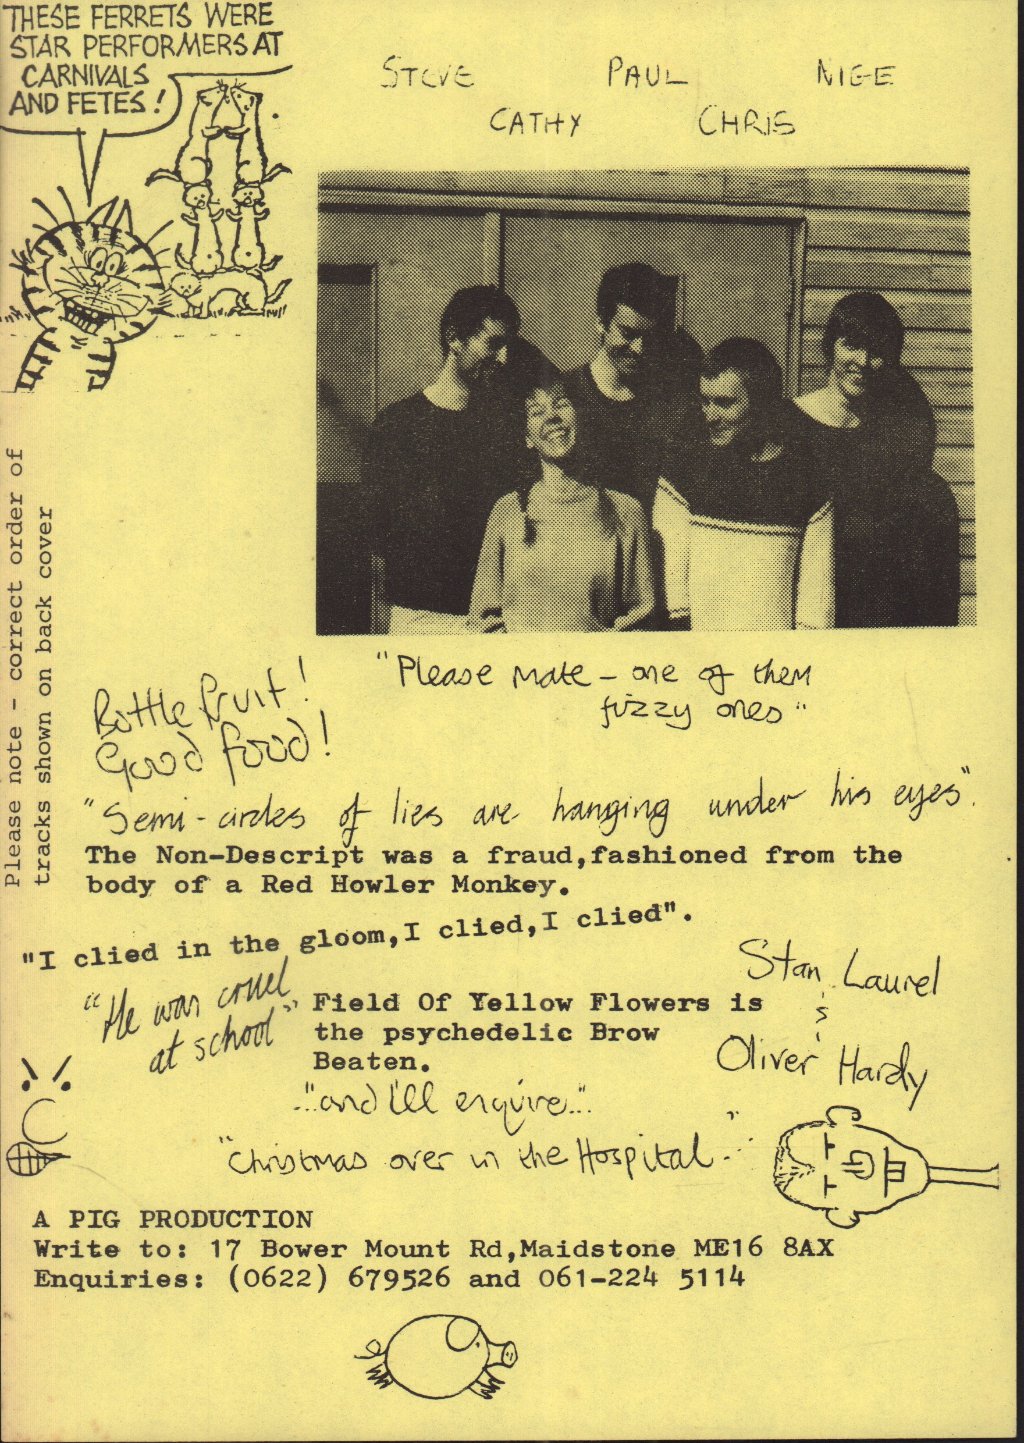 THESE FERRETS WERE
STAR PERFORMERS AT
CARNIVALS
AND FETES!
STEVE PAUL NIGE
CATHY CHRIS
Please note - correct order of
tracks shown on back cover
"Please mate - one of them
fuzzy ones"
Bottle fruit!
Good food!
"Semi-circles of lies are hanging under his eyes".
The Non-Descript was a fraud,fashioned from the
body of a Red Howler Monkey.
"I clied in the gloom,I clied,I clied".
"He was cruel
at school"
Field Of Yellow Flowers is
the psychedelic Brow
Beaten.
Stan Laurel
&
Oliver Hardy
..."and I'll enquire..."
"Christmas over in the Hospital..."
A PIG PRODUCTION
Write to: 17 Bower Mount Rd,Maidstone ME16 8AX
Enquiries: (0622) 679526 and 061-224 5114